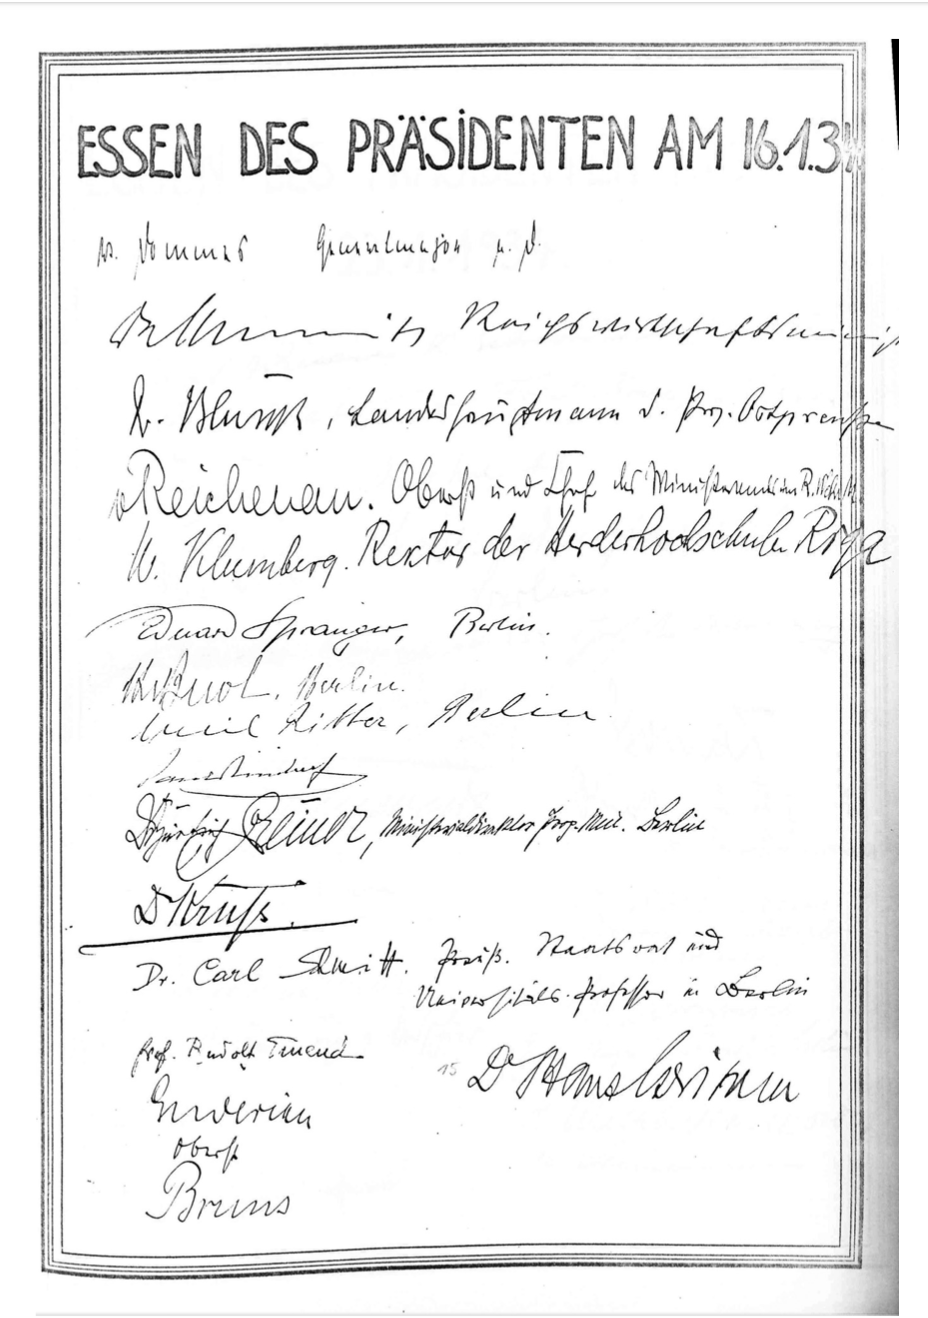 ESSEN DES PRÄSIDENTEN AM 16.1.34
v. Dommes Generalmajor a. D.
Dr Schmitt Reichswirtschaftsminist
Dr. Blunk, Landeshauptmann d. Prov. Ostpreußen
v Reichenau. Oberst und Chef des Ministeramts im
W. Klumberg. Rektor der Herderhochschule Riga
Eduard Spranger, Berlin.
Berlin.
Emil Ritter, Berlin
Greiner, Ministerialdirektor Prop. Min. Berlin
D Krüß.
Dr. Carl Schmitt. Preuß. Staatsrat und
Universitäts-Professor in Berlin
Prof. Rudolf Smend
15 Dr Hans
Guderian
Oberst
Bruns